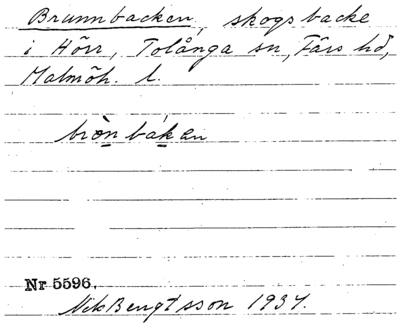 Brunnbacken, skogsbacke
i Hörr, Tolånga sn, Färs hd,
Malmöh. l.
brònbákan
Nr 5596.
Nils Bengtsson 1937.